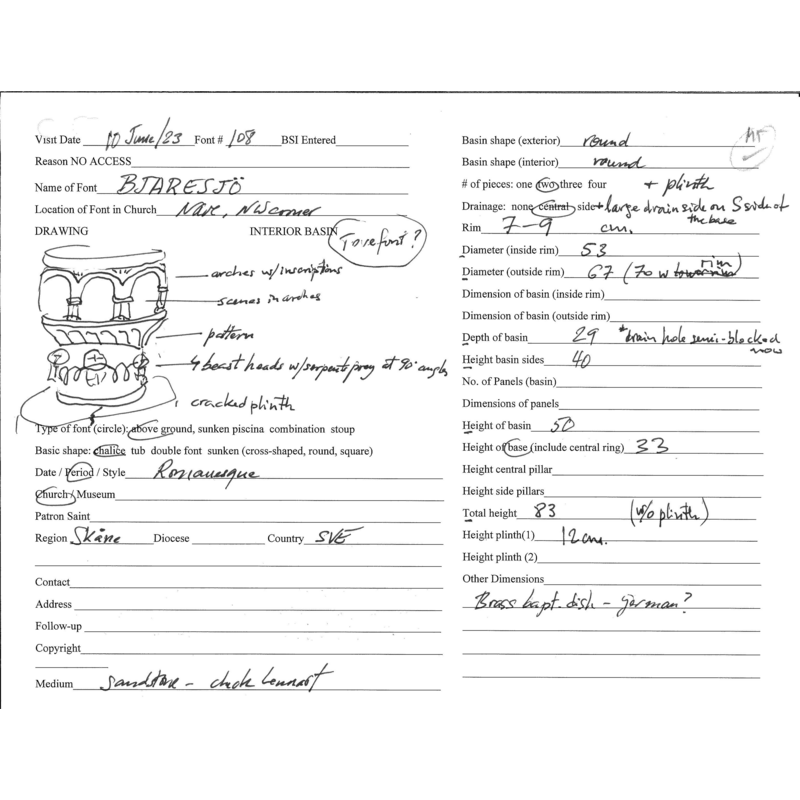 Visit Date 10 June/23 Font # 108 BSI Entered
Reason NO ACCESS
Name of Font BJARESJÖ
Location of Font in Church Nave, NW corner
DRAWING INTERIOR BASIN
Tore font?
arches w/inscriptions
scenes in arches
pattern
4 beast heads w/serpents prey at 90° angles
cracked plinth
Type of font (circle): above ground, sunken piscina combination stoup
Basic shape: chalice tub double font sunken (cross-shaped, round, square)
Date / Period / Style Romanesque
Church / Museum
Patron Saint
Region Skåne Diocese Country SVE
Contact
Address
Follow-up
Copyright
Medium sandstone - check Lennart
MT
Basin shape (exterior) round
Basin shape (interior) round
# of pieces: one two three four + plinth
Drainage: none central side + large drain side on S side of the base
Rim 7-9 cm.
Diameter (inside rim) 53
Diameter (outside rim) 67 (70 w rim)
Dimension of basin (inside rim)
Dimension of basin (outside rim)
Depth of basin 29 *drain hole semi-blocked now
Height basin sides 40
No. of Panels (basin)
Dimensions of panels
Height of basin 50
Height of base (include central ring) 33
Height central pillar
Height side pillars
Total height 83 (w/o plinth)
Height plinth(1) 12 cm.
Height plinth (2)
Other Dimensions
Brass bapt. dish - german?